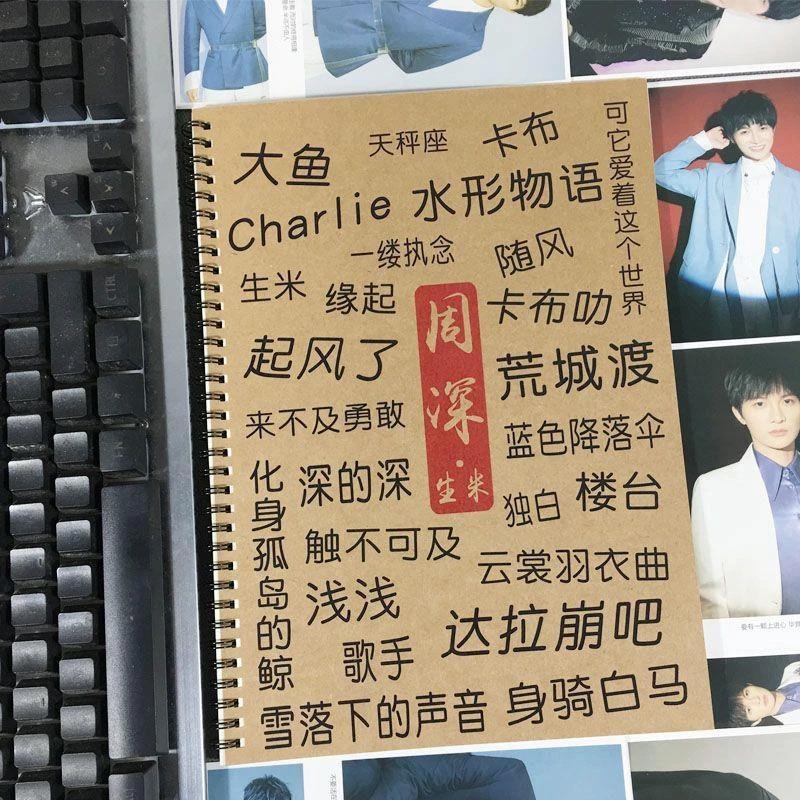 大鱼
天秤座
卡布
可它爱着这个世界
Charlie
水形物语
一缕执念
随风
生米
缘起
卡布叻
周深·生米
起风了
荒城渡
来不及勇敢
蓝色降落伞
化身孤岛的鲸
深的深
独白
楼台
触不可及
云裳羽衣曲
浅浅
达拉崩吧
歌手
雪落下的声音
身骑白马
CTRL